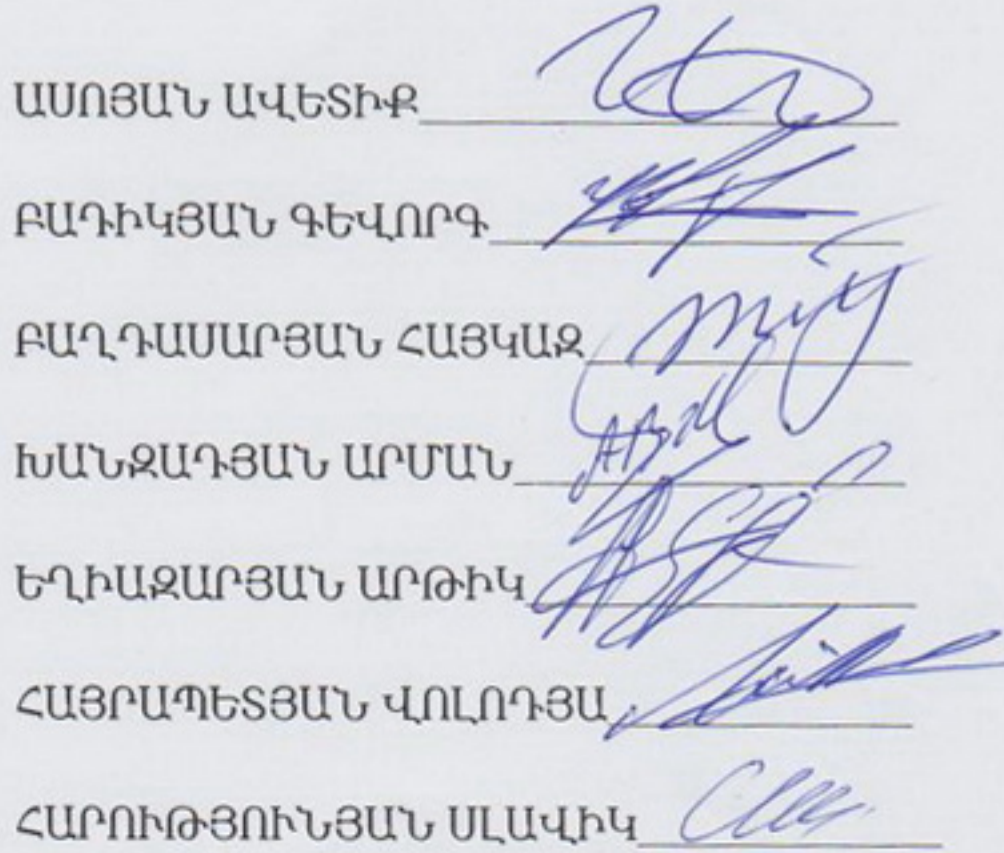 ԱՍՈՅԱՆ ԱՎԵՏԻՔ
ԲԱԴԻԿՅԱՆ ԳԵՎՈՐԳ
ԲԱՂԴԱՍԱՐՅԱՆ ՀԱՅԿԱԶ
ԽԱՆԶԱԴՅԱՆ ԱՐՄԱՆ
ԵՂԻԱԶԱՐՅԱՆ ԱՐԹԻԿ
ՀԱՅՐԱՊԵՏՅԱՆ ՎՈԼՈԴՅԱ
ՀԱՐՈՒԹՅՈՒՆՅԱՆ ՍԼԱՎԻԿ